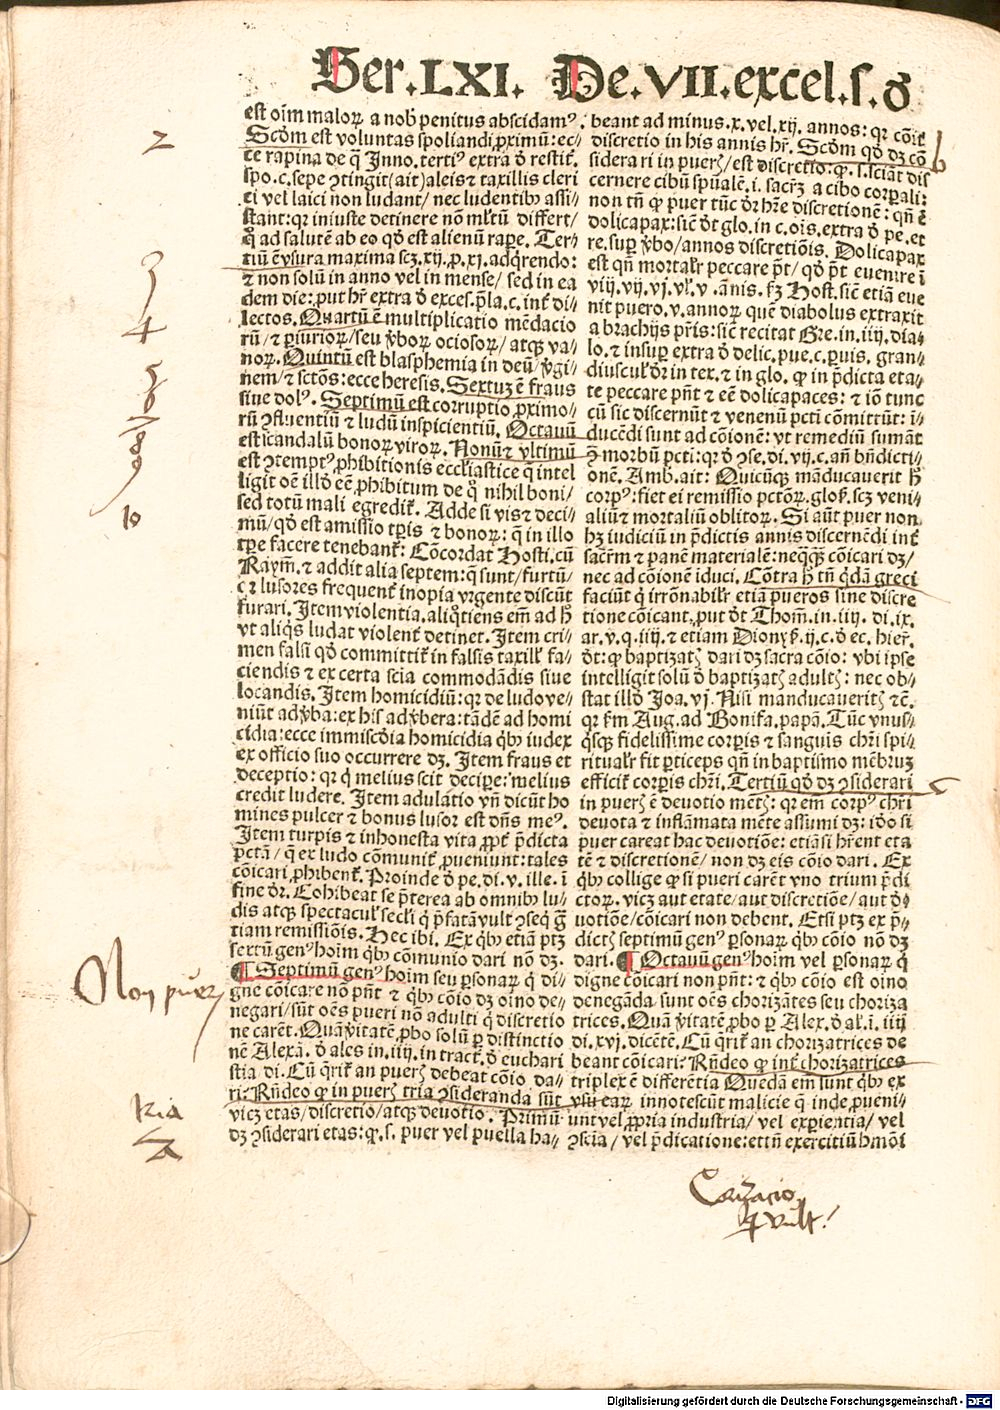 Ser. LXI. De. VII. excel. s. ꝺ̄
est oīm maloꝝ a nob̄ penitus abscidamꝰ.
Scd̓m est voluntas spoliandi ꝓximū: ec-
ce rapina de q̄ Inno. tertiꝰ extra d̓ restit̄.
spo. c. sepe ꝯtingit (ait) aleis ⁊ taxillis cleri
ci vel laici non ludant/ nec ludentibꝰ assi//
stant: qꝛ iniuste detinere nō ml̓tū differt/
q̇ ad salutē ab eo qd̓ est alienū raꝑe. Ter-
tiū ē vsura maxima scꝫ. xij. ꝓ. xj. adq̄rendo:
⁊ non solū in anno vel in mense/ sed in ea
dem die: put hr̄ extra d̓ exces. p̄la. c. int̄ di-
lectos. Quartū ē multiplicatio mēdacio
rū/ ⁊ ꝑiurioꝝ/ seu v̓boꝝ ociosoꝝ/ atqꝫ va-
noꝝ. Quintū est blasphemia in deū/ v̓gi-
nem/ ⁊ sctōs: ecce heresis. Sextuꝫ ē fraus
siue dolꝰ. Septimū est corruptio ꝓximo-
rū ꝯfluentiū ⁊ ludū inspicientiū. Octauū
est scandalū bonoꝝ viroꝝ. Nonū ⁊ vltimū
est ꝯtemptꝰ ꝓhibitionis eccl̓iastice q̄ intel
ligit oē illd̓ eē ꝓhibitum de qͦ nihil boni/
sed totū mali egredit̄. Adde si vis ⁊ deci-
mū/ qd̓ est amissio tꝑis ⁊ bonoꝝ: q̄ in illo
tꝑe facere tenebant̄: Cōcordat Hosti. cū
Raym̄. ⁊ addit alia septem: q̄ sunt/ furtū/
qꝛ lusores frequent̄ inopia vrgente discūt
furari. Item violentia. aliq̄tiens em̄ ad h̄
vt aliq̇s ludat violent̄ detinet̄. Item cri-
men falsi qd̓ committit̄ in falsis taxill̓ fa-
ciendis ⁊ ex certa sc̄ia commodādis siue
locandis. Item homicidiū: qꝛ de ludo ve-
niūt ad v̓ba: ex his ad v̓bera: tādē ad homi
cidia: ecce immiscd̓ia homicidia qͥbꝰ iudex
ex officio suo occurrere dꝫ. Item fraus et
deceptio: qꝛ q̇ melius scit deciꝑe: melius
credit ludere. Item adulatio vn̄ dicūt ho
mines pulcer ⁊ bonus lusor est dn̄s meꝰ.
Item turpis ⁊ inhonesta vita ꝓpt̄ p̄dicta
pctā/ q̄ ex ludo cōmunit̄ ꝓueniunt: tales
cōicari ꝓhibent̄. Proinde d̓ pe. di. v. ille. ī
fine dr̄. Cohibeat se p̄terea ab omnibꝰ lu-
dis atqꝫ spectacul̓ secl̓i q̇ p̄fatā vult ꝯseq̇ gr̄
tiam remissiōis. Hec ibi. Ex qͥbꝰ etiam ptꝫ
sextū genꝰ hoīm qͥbꝰ cōmunio dari nō dꝫ.
¶ Septimū genꝰ hoīm seu ꝑsonaꝝ q̇ di-
gne cōicare nō pn̄t ⁊ qͥbꝰ cōio dꝫ oīno de-
negari/ sūt oēs pueri nō adulti q̇ discretio
ne carēt. Quā v̓itatē ꝓbo solū ꝑ distinctio
nē Alexā. d̓ ales in. iiij. in tract̄. d̓ euchari
stia di. Cū q̄rit̄ an pueris debeat cōio da-
ri: Rn̄deo ꝙ in pueris tria ꝯsideranda sūt
vicꝫ etas/ discretio/ atqꝫ deuotio. Primū
dꝫ ꝯsiderari etas: ꝙ. s. puer vel puella ha-
beant ad minus. x. vel. xij. annos: qꝛ cōit̄
discretio in his annis hr̄. Scd̓m qd̓ dꝫ cō
siderari in pueris/ est discretio: ꝙ. s. sciāt dis
cernere cibū spūalē. i. sacr̄ꝫ a cibo corꝑali:
non tn̄ ꝙ puer tūc d̓r hr̄e discretionē: qn̄ ē
doli capax: sic̄ d̓t glo. in c. oīs. extra d̓ pe. et
re. suꝑ v̓bo/ annos discretiōis. Doli capax
est qn̄ mortalr̄ peccare pt̄/ qd̓ pt̄ euenire ī
viij. vij. vj. vl̓. v. ānis. s̓ꝫ Host. sic̄ etiā eue
nit puero. v. annoꝝ quē diabolus extraxit
a brachijs pr̄is: sic̄ recitat Gre. in. iiij. dia-
lo. ⁊ insuꝑ extra d̓ delic. pue. c. ꝑuis. gran-
diuscul̓ d̓r in tex. ⁊ in glo. ꝙ in p̄dicta eta-
te peccare pn̄t ⁊ eē doli capaces: ⁊ iō tunc
cū sic discernūt ⁊ venenū pcti cōmittūt: ī-
ducēdi sunt ad cōionē: vt remediū sumāt
ꝯ̄ morbū pcti: qꝛ d̓ ꝯse. di. vij. c. an̄ bn̄dicti-
onē. Amb. ait: Quicūqꝫ māducauerit h̄
corpꝰ: fiet ei remissio pctōꝝ. glos̄. scꝫ veni-
aliū ⁊ mortaliū oblitoꝝ. Si aūt puer non
hꝫ iudiciū in p̄dictis annis discernēdi int̄
sacr̄m ⁊ panē materialē: neq̄q̄ꝫ cōicari dꝫ/
nec ad cōionē iduci. Cōtra h̄ tn̄ q̇dā greci
faciūt q̇ irrōnabilr̄ etiā pueros sine discre
tione cōicant, put d̓t Thom̄. in. iiij. di. ix.
ar. v. q. iiij. ⁊ etiam Dionys̄. ij. c. d̓ ec. hier̄.
d̓t: ꝙ baptizatis dari dꝫ sacra cōio: vbi ipse
intelligit solū d̓ baptizatis adultis: nec ob-
stat illd̓ Joa. vj. Nisi manducaueritis ⁊c̄.
qꝛ s̄m Aug. ad Bonifa. papā. Tūc vnus-
q̇sqꝫ fidelissime corꝑis ⁊ sanguīs chr̄i spi-
ritualr̄ fit ꝑticeps qn̄ in baptismo mēbruꝫ
efficit̄ corꝑis chr̄i. Tertiū qd̓ dꝫ ꝯsiderari
in pueris ē deuotio mētis: qꝛ em̄ corpꝰ chr̄i
deuota ⁊ inflāmata mēte assumi dꝫ: ido si
puer careat hac deuotiōe: etiā si hr̄ent eta
tē ⁊ discretionē/ non dꝫ eis cōio dari. Ex
qͥbꝰ collige ꝙ si pueri carēt vno trium p̄di
ctoꝝ. vicꝫ aut etate/ aut discretiōe/ aut d̓-
uotiōe/ cōicari non debent. Etsi ptꝫ ex p̄-
dictis septimū genꝰ ꝑsonaꝝ qͥbꝰ cōio nō dꝫ
dari. ¶ Octauū genꝰ hoīm vel ꝑsonaꝝ q̇
digne cōicari non pn̄t: ⁊ qͥbꝰ cōio est oīno
denegāda sunt oēs chorizātes seu choriza
trices. Quā v̓itatē ꝓbo ꝑ Alex. d̓ al̓. ī. iiij
di. xvj. dicētē. Cū q̄rit̄ an chorizatrices de
beant cōicari: Rn̄deo ꝙ int̄ chorizatrices
triplex ē differētia Quedā em̄ sunt qͥbꝰ ex
vsu eaꝝ innotescūt malicie q̄ inde ꝓueni-
unt vel ꝓpria industria/ vel exꝑientia/ vel
ꝯscīa/ vel p̄dicatione: et tn̄ exercitiū hmōi
2
3
4
5
6
7
8
9
10
Non pueris
tria
a
b
c
Corizacio